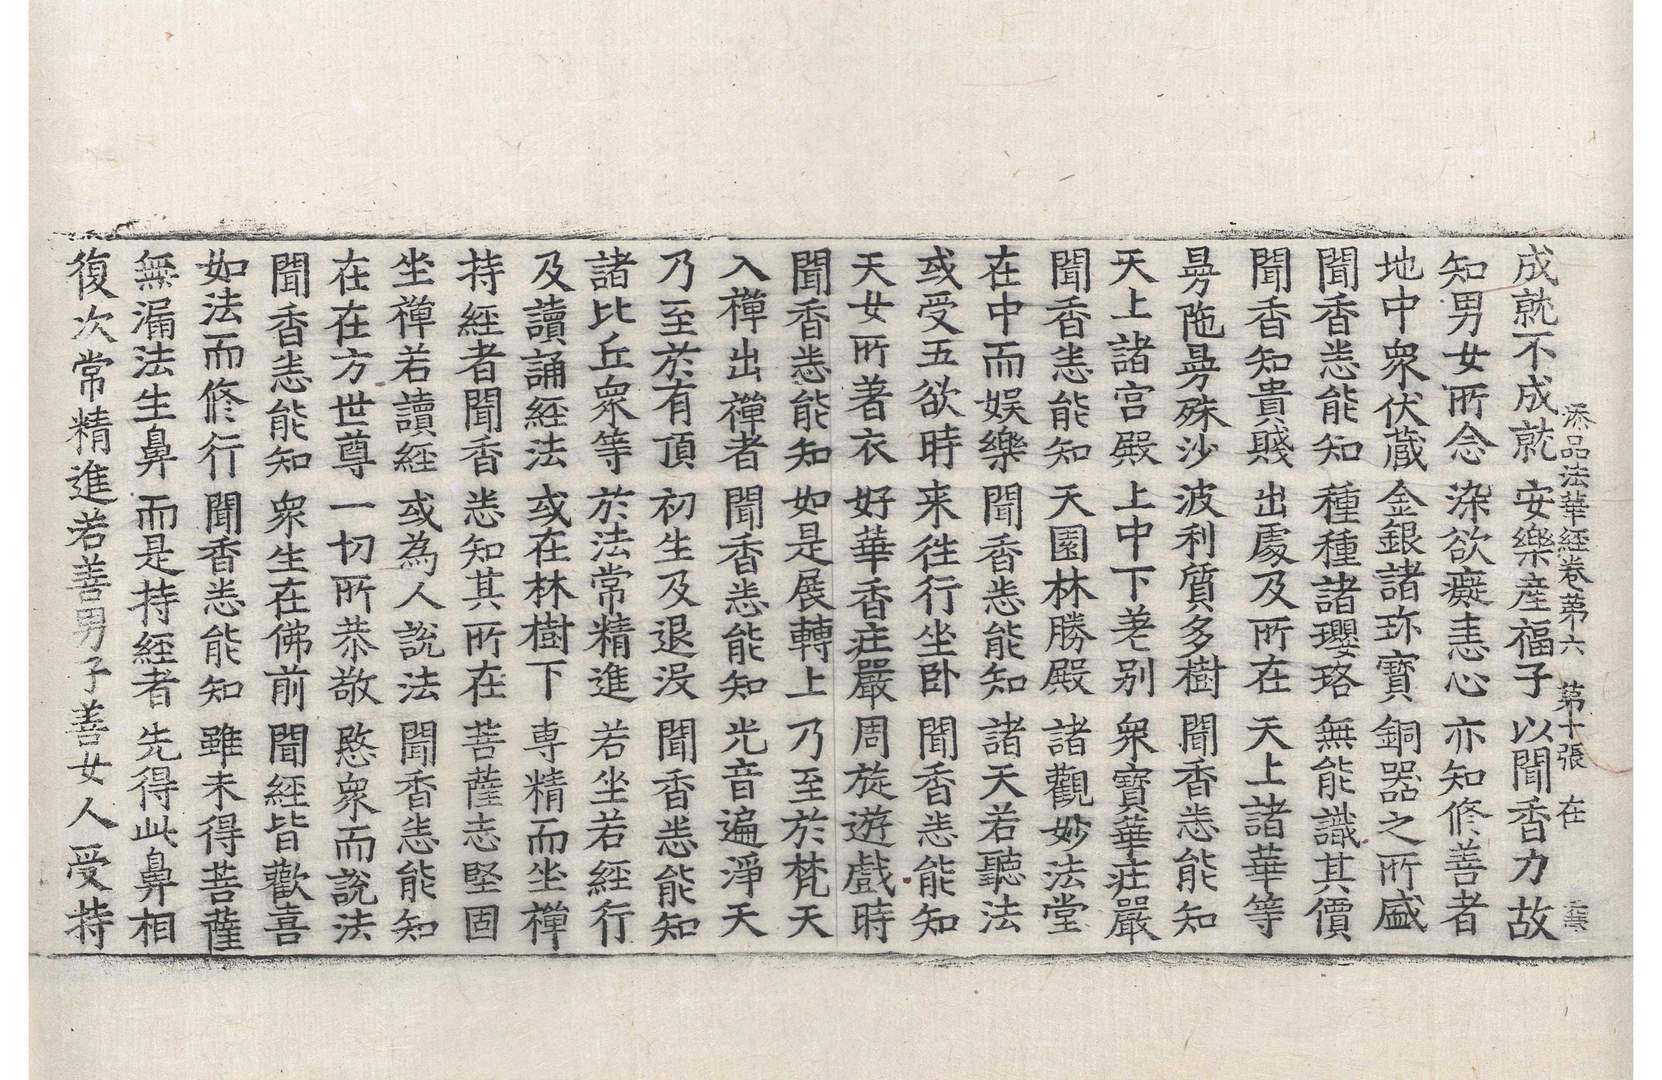 添品法華経卷第六 第十張 在
成就不成就 安樂産福子 以聞香力故
知男女所念 染欲癡恚心 亦知修善者
地中衆伏藏 金銀諸珎寶 銅器之所盛
聞香悉能知 種種諸瓔珞 無能識其價
聞香知貴賤 出處及所在 天上諸華等
曼陁曼殊沙 波利質多樹 聞香悉能知
天上諸宮殿 上中下差別 衆寶華莊嚴
聞香悉能知 天園林勝殿 諸觀妙法堂
在中而娛樂 聞香悉能知 諸天若聽法
或受五欲時 来徃行坐卧 聞香悉能知
天女所著衣 好華香莊嚴 周旋遊戲時
聞香悉能知 如是展轉上 乃至於梵天
入禪出禪者 聞香悉能知 光音遍淨天
乃至於有頂 初生及退没 聞香悉能知
諸比丘衆等 於法常精進 若坐若經行
及讀誦經法 或在林樹下 専精而坐禪
持經者聞香 悉知其所在 菩薩志堅固
坐禪若讀經 或為人說法 聞香悉能知
在在方世尊 一切所恭敬 愍衆而說法
聞香悉能知 衆生在佛前 聞經皆歡喜
如法而修行 聞香悉能知 雖未得菩薩
無漏法生鼻 而是持經者 先得此鼻相
復次常精進若善男子善女人受持